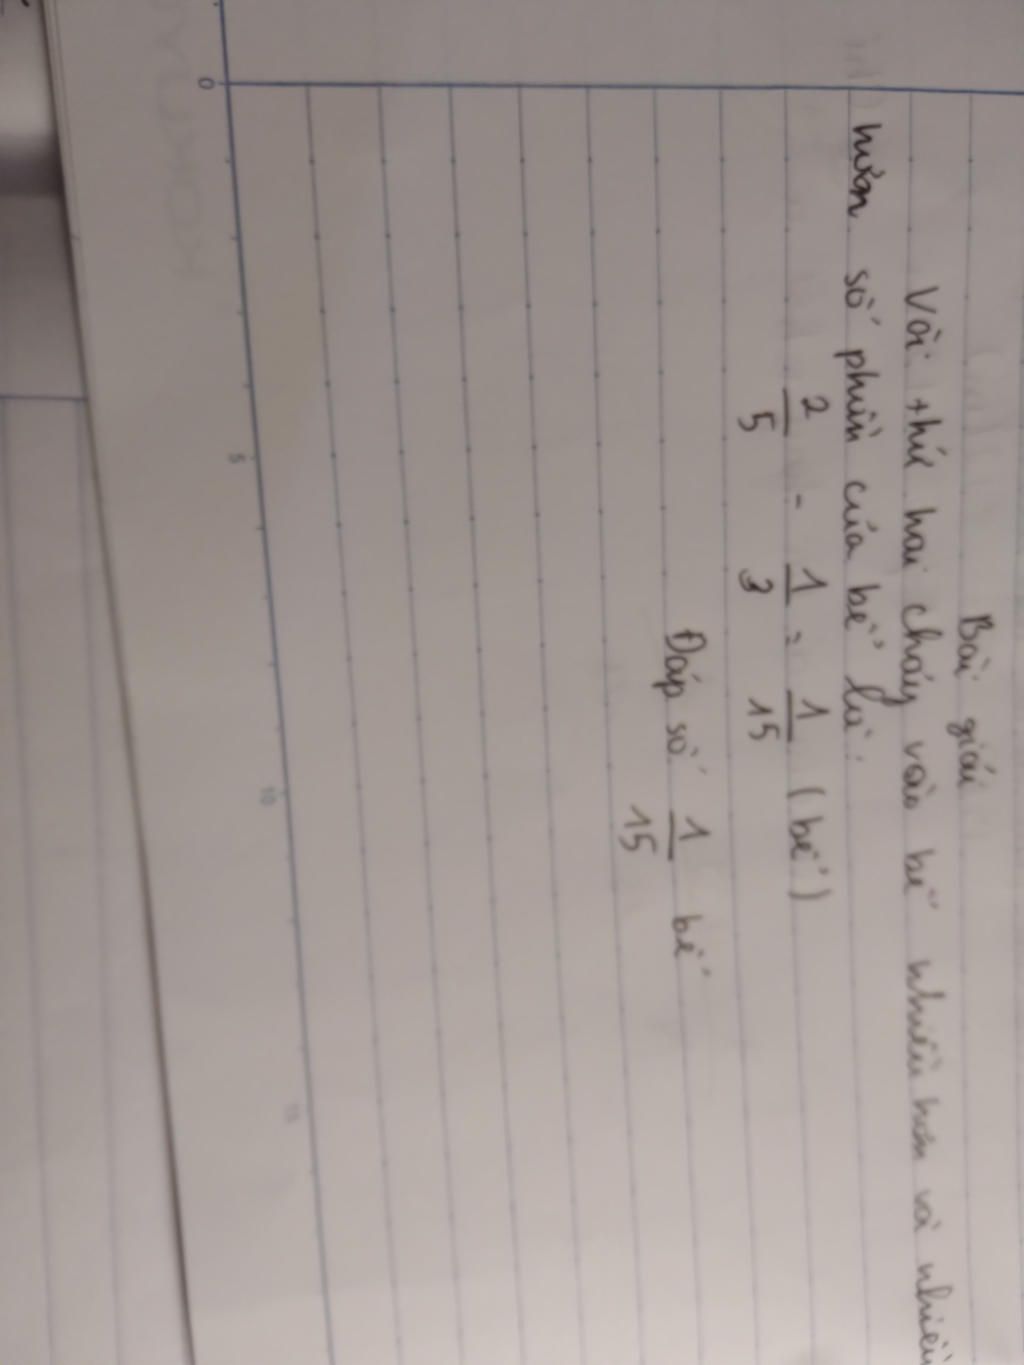 Bài giải
Vòi thứ hai chảy vào bể nhiều hơn và nhiều
hơn số phần của bể là:
2/5 - 1/3 = 1/15 (bể)
Đáp số 1/15 bể
0 5 10 15